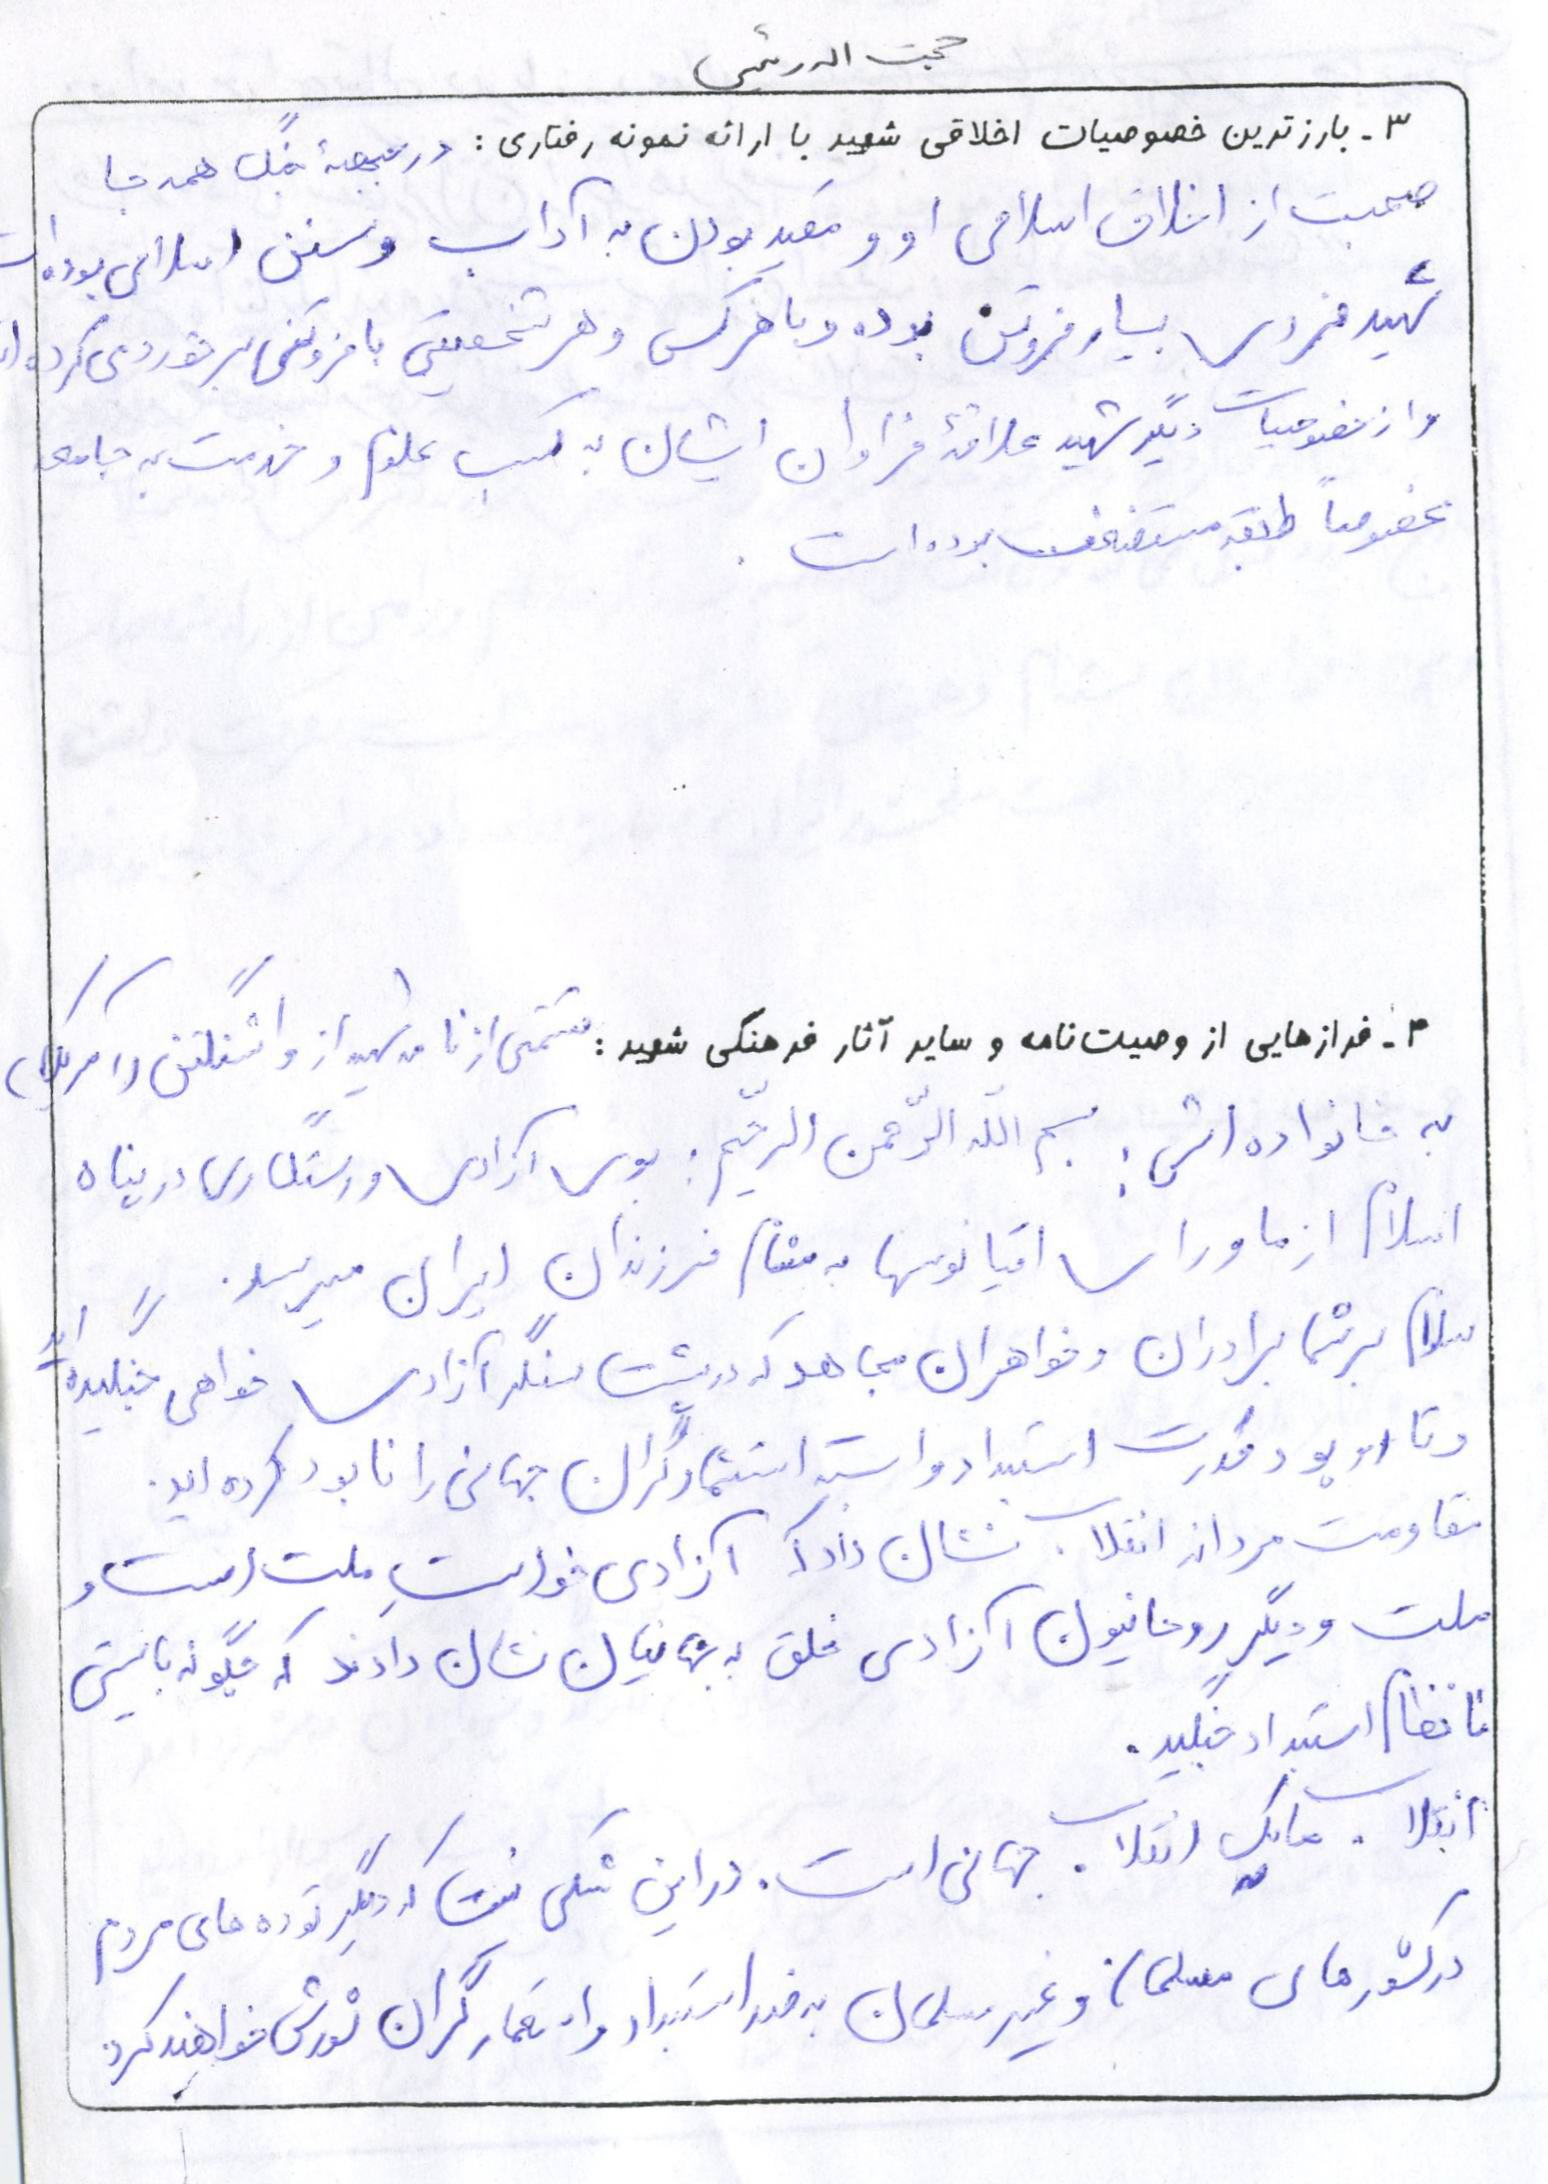 حجت اله رشی
۳- بارزترین خصوصیات اخلاقی شهید با ارائه نمونه رفتاری: در جبههٔ جنگ همه جا
صحبت از اخلاق اسلامی او و مقید بودن به آداب و سنن اسلامی بوده است
شهید فردی بسیار فروتن بوده و با هرکس و هر شخصیتی با فروتنی برخورد می کرده است
و از خصوصیات دیگر شهید علاقهٔ فراوان ایشان به کسب علوم و خدمت به جامعه
مخصوصاً طبقه مستضعف بوده است.
۴- فرازهایی از وصیت‌نامه و سایر آثار فرهنگی شهید: قسمتی از نامه شهید از واشنگتن (امریکا)
به خانواده اش: بسم الله الرّحمن الرحیم: بوی آزادی و رستگاری در پناه
اسلام از ماورای اقیانوسها به مشام فرزندان ایران میرسد.
سلام بر شما برادران و خواهران مجاهد که در پشت سنگر آزادی خواهی جنگیده اید
و تار و پود قدرت استبداد وابسته استثمارگران جهانی را نابود کرده اید.
مقاومت مردانه انقلاب نشان داد که آزادی خواست ملت است و
ملت و دیگر روحانیون آزادی خلق به جهانیان نشان دادند که چگونه بایستی
با نظام استبداد جنگید.
انقلاب ما یک انقلاب جهانی است. در این شکی نیست که دیگر توده های مردم
در کشورهای مسلمان و غیر مسلمان به ضد استبداد و استعمارگران شورش خواهند کرد.